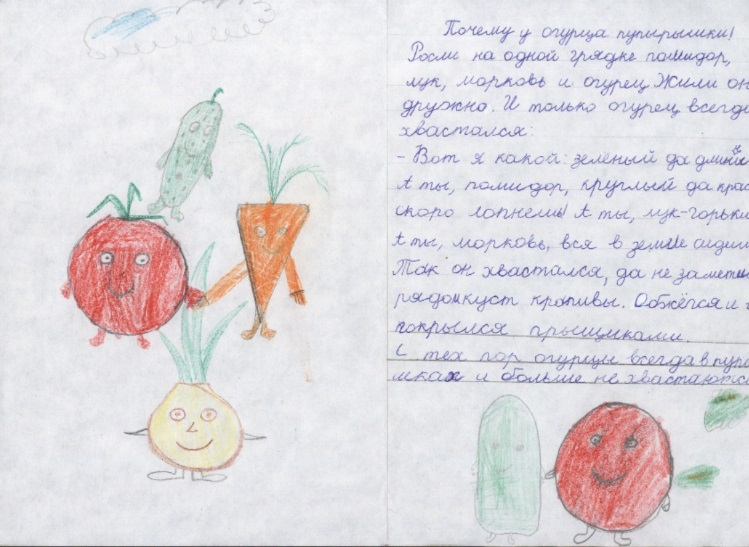 Почему у огурца пупырышки!
Росли на одной грядке помидор,
лук, морковь и огурец. Жили он
дружно. И только огурец всегда
хвастался:
- Вот я какой: зелёный да длинный
А ты, помидор, круглый да крас
скоро лопнешь! А ты, лук-горьки
А ты, морковь, вся в земле сидиш
Так он хвастался, да не заметил
рядом куст крапивы. Обжёгся и
покрылся прыщиками.
С тех пор огурцы всегда в пупы
шках и больше не хвастаются